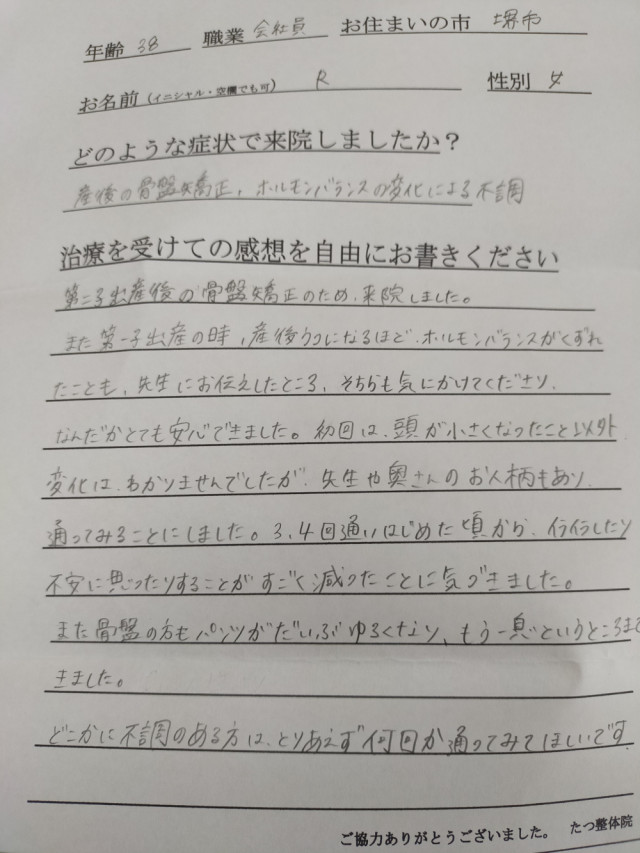 年齢 38 職業 会社員 お住まいの市 堺市
お名前（イニシャル・空欄でも可） R 性別 女
どのような症状で来院しましたか？
産後の骨盤矯正，ホルモンバランスの変化による不調
治療を受けての感想を自由にお書きください
第二子出産後の骨盤矯正のため，来院しました。
また第一子出産の時，産後うつになるほど，ホルモンバランスがくずれ
たことも，先生にお伝えしたところ，そちらも気にかけてくださり，
なんだかとても安心できました。初回は，頭が小さくなったこと以外
変化は，わかりませんでしたが，先生や奥さんのお人柄もあり，
通ってみることにしました。3，4回通いはじめた頃から，イライラしたり
不安に思ったりすることがすごく減ったことに気づきました。
また骨盤の方もパンツがだいぶゆるくなり，もう一息というところまで
きました。
どこかに不調のある方は，とりあえず何回か通ってみてほしいです
ご協力ありがとうございました。 たつ整体院